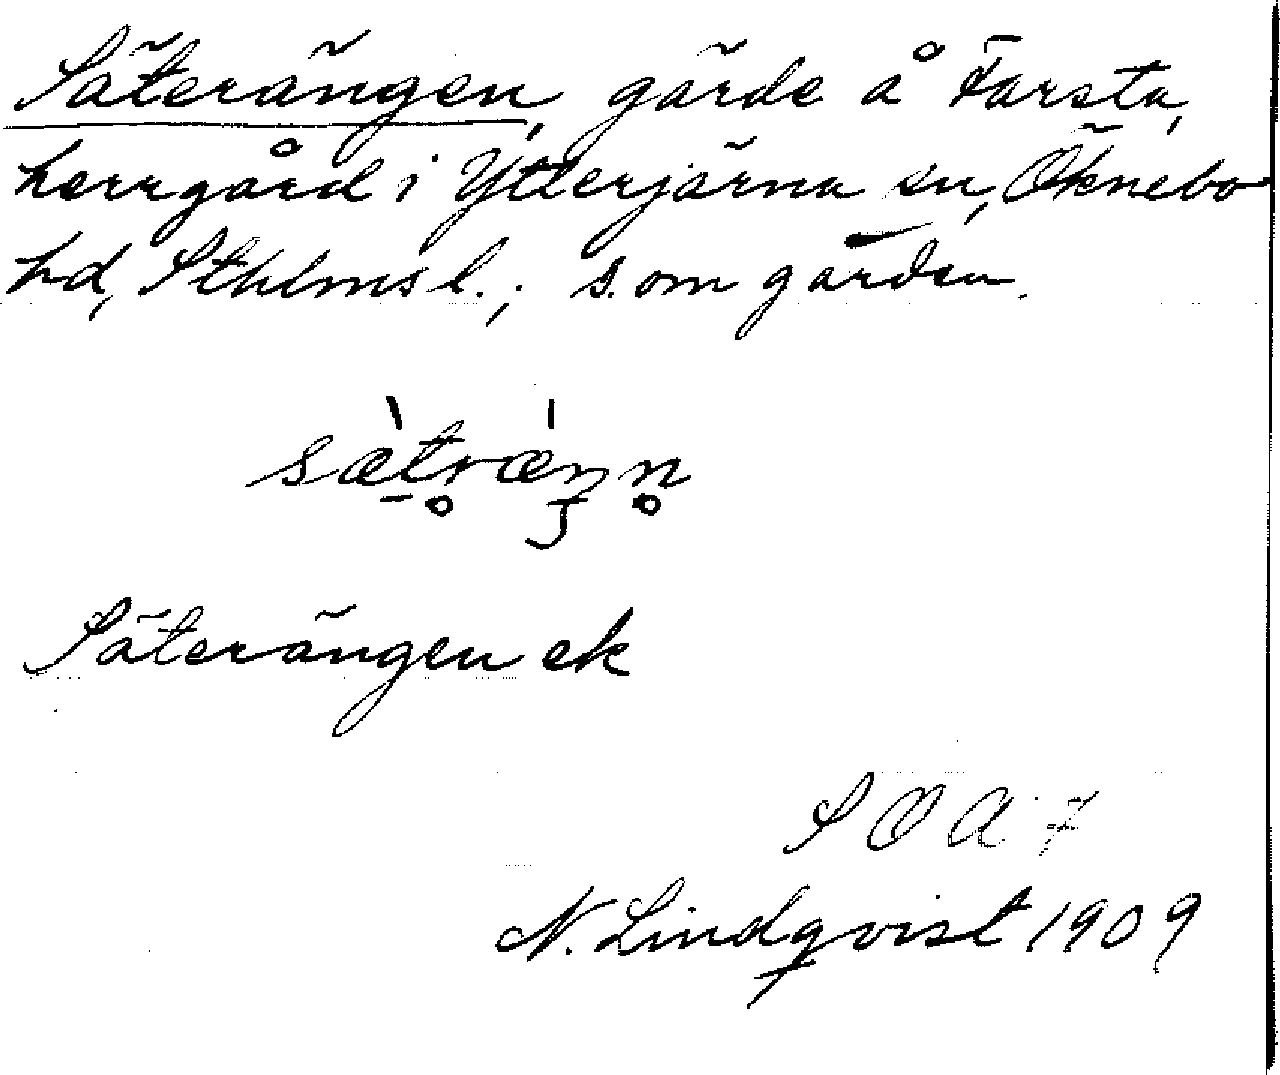 Säterängen, gärde å Farsta,
herrgård i Ytterjärna sn, Öknebo
hd, Sthlms l.; s. om gården.
sæ̀træ´ŋn̥
Säterängen ek
S O A 7
N. Lindqvist 1909